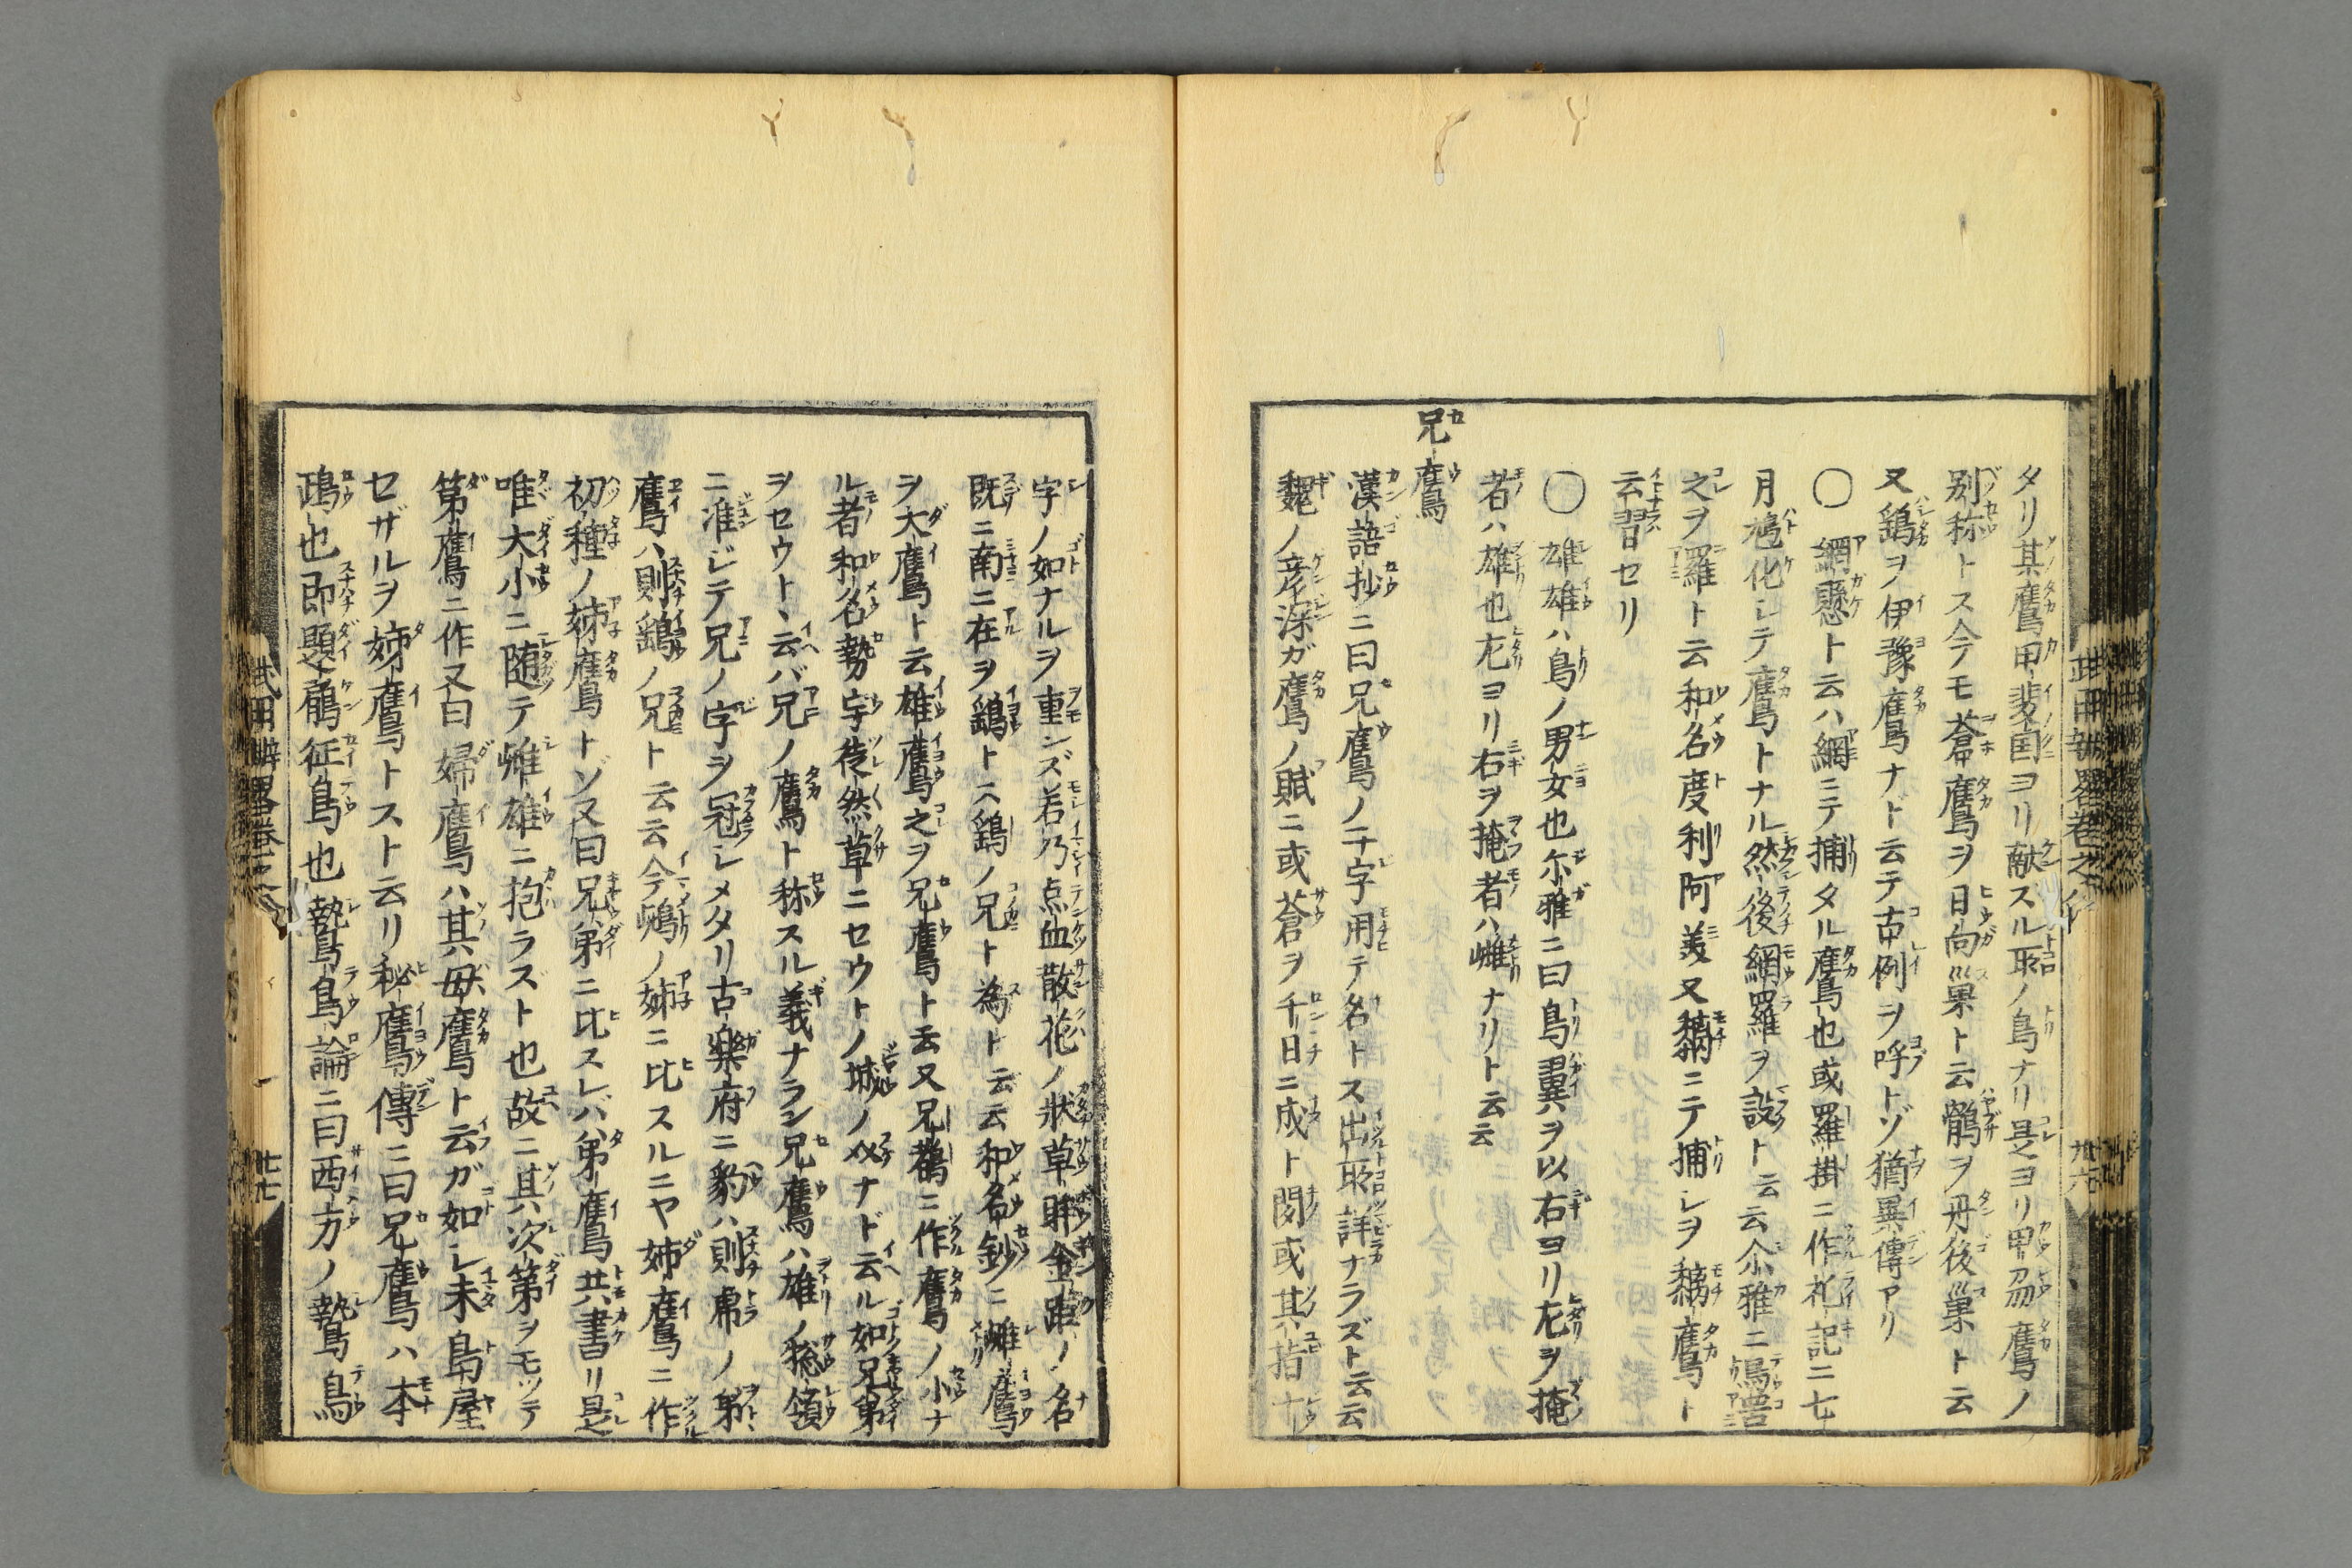 タリ其鷹甲斐国ヨリ献スル所ノ鳥ナリ是ヨリ甲刕鷹ノ
別称トス今モ蒼鷹ヲ日向巣ト云鶻ヲ丹後巣ト云
又鷂ヲ伊豫鷹ナト云テ古例ヲ呼トゾ猶異傳アリ
〇網懸ト云ハ網ニテ捕タル鷹也或羅掛ニ作礼記ニ七
月鳩化シテ鷹トナル然後網羅ヲ設ト云云尒雅ニ鳥罟
之ヲ羅ト云和名度利阿美又黐ニテ捕シヲ黐鷹ト
云習セリ
〇雄雌ハ鳥ノ男女也尓雅ニ曰鳥翼ヲ以右ヨリ左ヲ掩
者ハ雄也左ヨリ右ヲ掩者ハ雌ナリト云云
兄鷹
漢語抄ニ曰兄鷹ノ二字用テ名トス出所詳ナラズト云云
魏ノ彦深ガ鷹ノ賦ニ或蒼ヲ千日ニ成ト閲或其指十
字ノ如ナルヲ重ンズ若乃点血散花ノ狀草眸金距ノ名
既ニ南ニ在ヲ鷂トス鷂ノ兄ト為ト云云和名鈔ニ雌鷹
ヲ大鷹ト云雄鷹之ヲ兄鷹ト云又兄鷂ニ作鷹ノ小ナ
ル者和名勢宇徒然草ニセウトノ城ノ
ナド云ル如兄弟
ヲセウトヽ云バ兄ノ鷹ト称スル義ナラン兄鷹ハ雄ノ総領
ニ准ジテ兄ノ字ヲ冠シメタリ古樂府ニ豹ハ則席ノ弟
鷹ハ則鷂ノ兄ト云云今鴘ノ姉ニ比スルニヤ姉鷹ニ作
初種ノ姉鷹トゾ又曰兄弟ニ比スレバ弟鷹共書リ是
唯大小ニ随テ雌雄ニ抱ラズト也故ニ其次第ヲモツテ
第鷹ニ作又曰婦鷹ハ其母鷹ト云ガ如シ未鳥屋
セザルヲ姉鷹トスト云リ秘鷹傳ニ曰兄鷹ハ本
鵡也即題肩征鳥也鷙鳥論ニ曰西方ノ鷙鳥
武用辨畧巻之八
廿六
武用辨畧巻之八
廿七